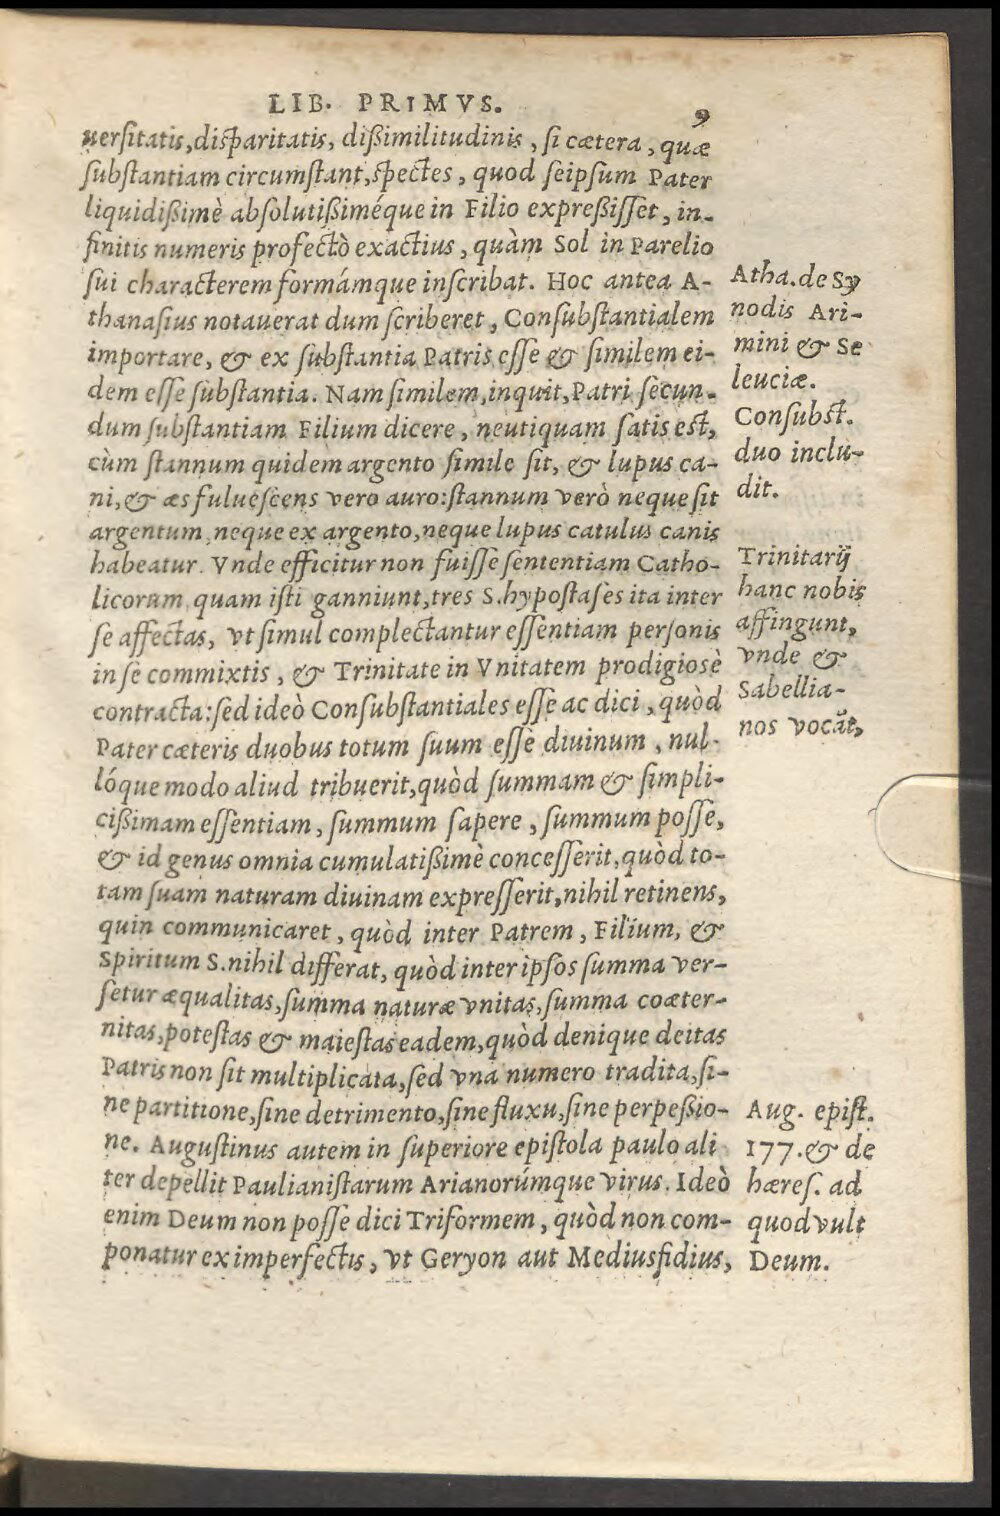 LIB. PRIMVS.
9
uersitatis, disparitatis, dißimilitudinis, si cætera, quæ
substantiam circumstant, spectes, quod seipsum Pater
liquidißimè absolutißiméque in Filio expreßisset, in-
finitis numeris profectò exactius, quàm Sol in Parelio
sui characterem formámque inscribat. Hoc antea A-
thanasius notauerat dum scriberet, Consubstantialem
importare, & ex substantia Patris esse & similem ei-
dem esse substantia. Nam similem, inquit, Patri secun-
dum substantiam Filium dicere, neutiquam satis est,
cùm stannum quidem argento simile sit, & lupus ca-
ni, & æs fuluescens vero auro: stannum verò neque sit
argentum, neque ex argento, neque lupus catulus canis
habeatur. Vnde efficitur non fuisse sententiam Catho-
licorum quam isti ganniunt, tres S. hypostases ita inter
se affectas, vt simul complectantur essentiam personis
in se commixtis, & Trinitate in Vnitatem prodigiosè
contracta: sed ideò Consubstantiales esse ac dici, quòd
Pater cæteris duobus totum suum esse diuinum, nul-
lóque modo aliud tribuerit, quòd summam & simpli-
cißimam essentiam, summum sapere, summum posse,
& id genus omnia cumulatißimè concesserit, quòd to-
tam suam naturam diuinam expresserit, nihil retinens,
quin communicaret, quòd inter Patrem, Filium, &
Spiritum S. nihil differat, quòd inter ipsos summa ver-
setur æqualitas, summa naturæ vnitas, summa coæter-
nitas, potestas & maiestas eadem, quòd denique deitas
Patris non sit multiplicata, sed vna numero tradita, si-
ne partitione, sine detrimento, sine fluxu, sine perpeßio-
ne. Augustinus autem in superiore epistola paulo ali
ter depellit Paulianistarum Arianorúmque virus. Ideò
enim Deum non posse dici Triformem, quòd non com-
ponatur ex imperfectis, vt Geryon aut Mediusfidius,
Atha. de Sy
nodis Ari-
mini & Se
leuciæ.
Consubst.
duo inclu-
dit.
Trinitarij
hanc nobis
affingunt,
vnde &
Sabellia-
nos vocāt,
Aug. epist.
177. & de
hæres. ad
quod vult
Deum.